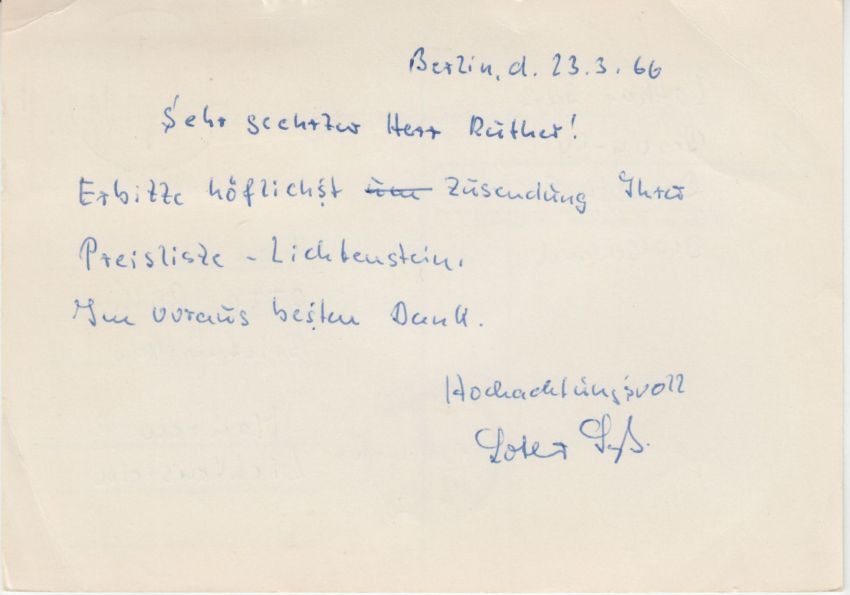 Berlin, d. 23.3.66
Sehr geehrter Herr Ruther!
Erbitte höflichst um Zusendung Ihrer
Preisliste - Lichtenstein.
Im voraus besten Dank.
Hochachtungsvoll